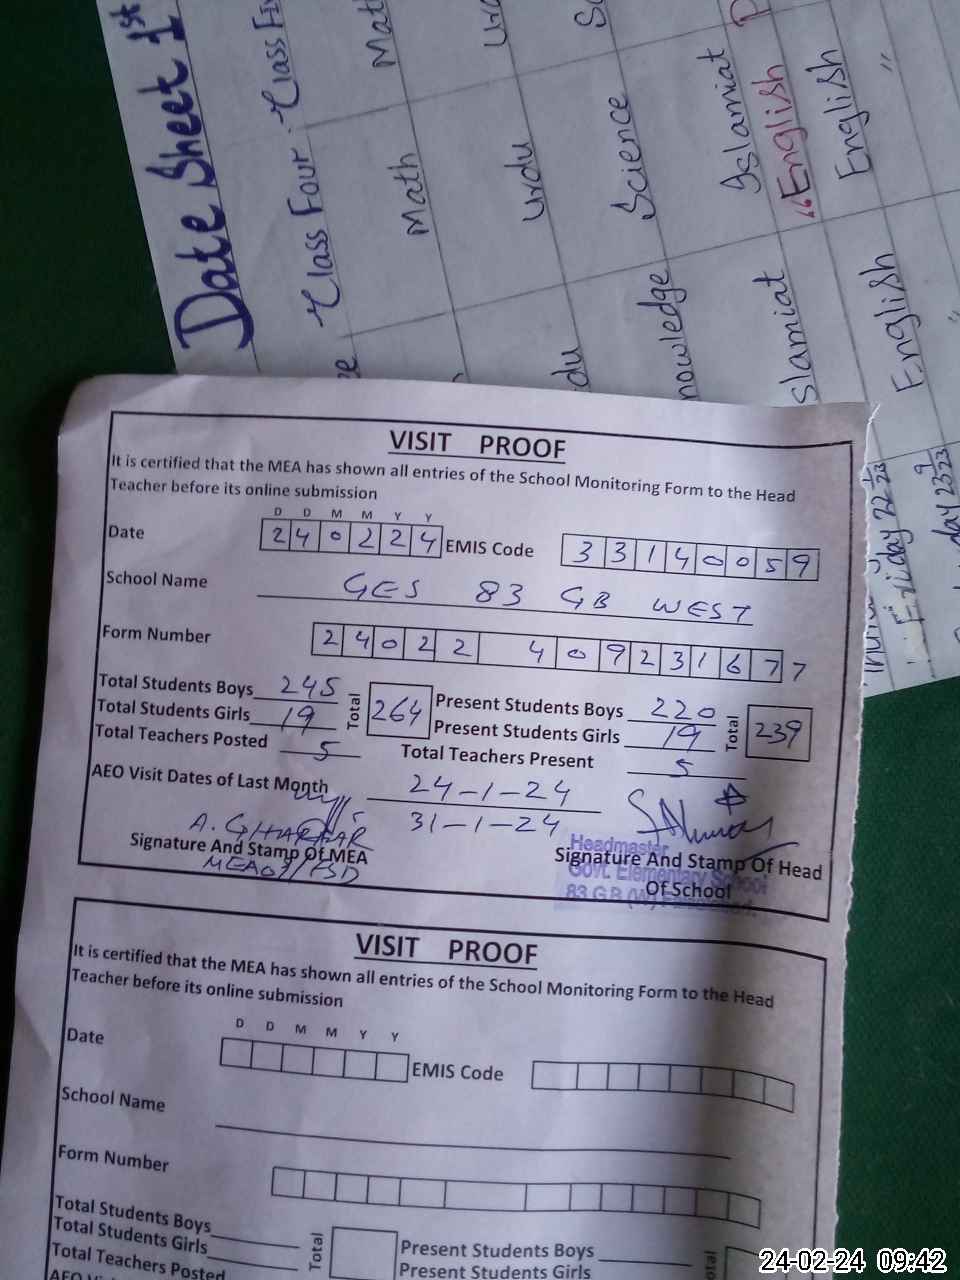 Date Sheet 1st
Class Four
Class Fi
Math
Math
Urdu
Urdu
Science
Islamiat
"English
English
"
nowledge
slamiat
English
du
Friday 22
VISIT PROOF
It is certified that the MEA has shown all entries of the School Monitoring Form to the Head
Teacher before its online submission
D D M M Y Y
Date 2 4 0 2 2 4 EMIS Code 3 3 1 4 0 0 5 9
School Name GES 83 GB WEST
Form Number 2 4 0 2 2 4 0 9 2 3 1 6 7 7
Total Students Boys 245 Total 264 Present Students Boys 220 Total 239
Total Students Girls 19 Present Students Girls 19
Total Teachers Posted 5 Total Teachers Present 5
AEO Visit Dates of Last Month 24-1-24
31-1-24
A. GHAFFAR
Signature And Stamp Of MEA
Headmaster
Signature And Stamp Of Head
Govt. Elementary School
Of School
83 G.B (W)
VISIT PROOF
It is certified that the MEA has shown all entries of the School Monitoring Form to the Head
Teacher before its online submission
D D M M Y Y
Date EMIS Code
School Name
Form Number
Total Students Boys Total Present Students Boys
Total Students Girls Present Students Girls
Total Teachers Posted
24-02-24 09:42